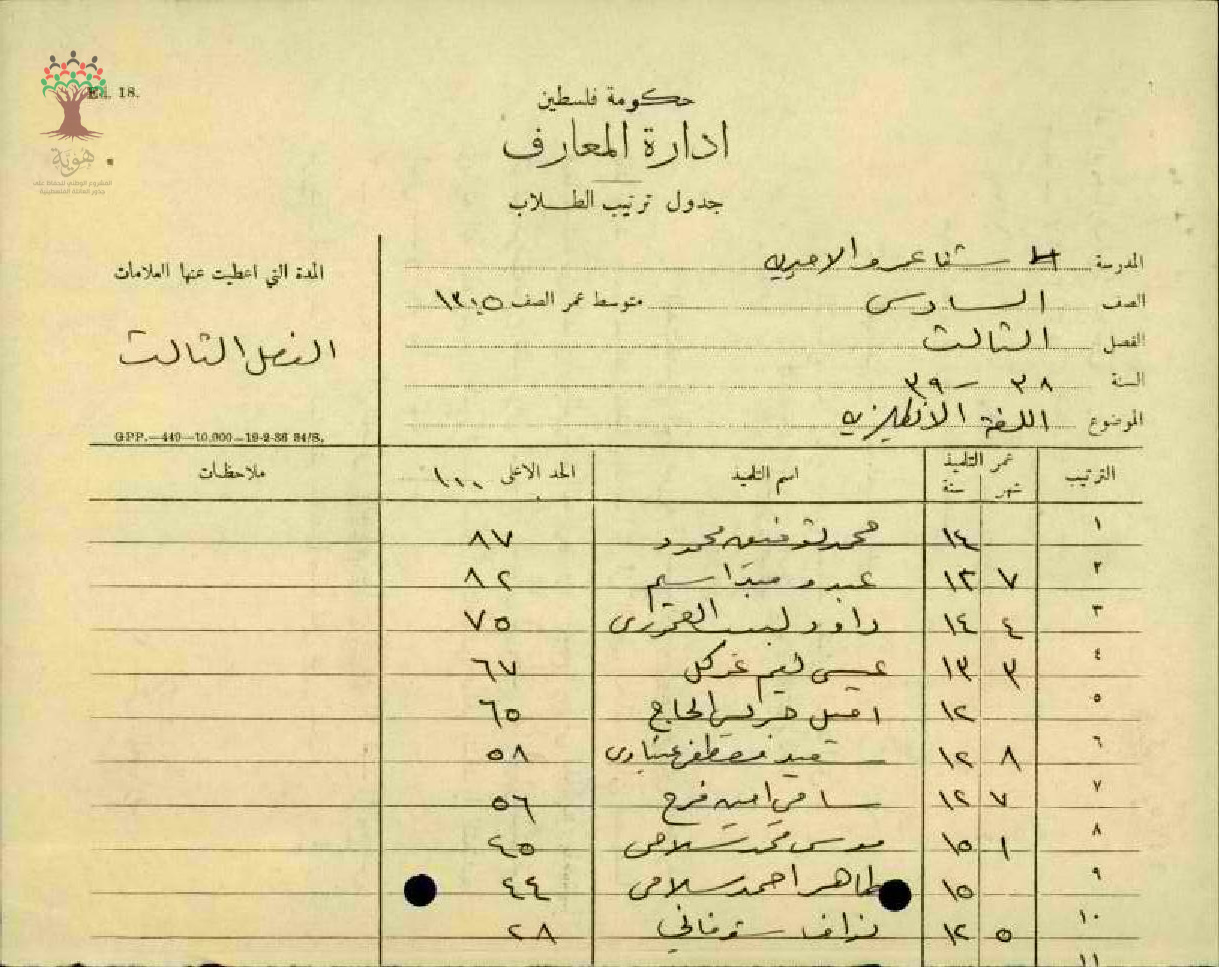 Ed. 18.
هوية
المشروع الوطني للحفاظ على
جذور العائلة الفلسطينية
حكومة فلسطين
ادارة المعارف
جدول ترتيب الطلاب
المدرسة شفا عمرو الاميرية
الصف السادس متوسط عمر الصف ١٣,٥
الفصل الثالث
السنة ٣٨ - ٣٩
الموضوع اللغة الانكليزية
المدة التي اعطيت عنها العلامات
الفصل الثالث
GPP.—449—10,000—19-2-36 34/S.
الترتيب عمر التلميذ شهر سنة اسم التلميذ الحد الاعلى ١٠٠ ملاحظات
١ ١٤ محمد توفيق محمود ٨٧
٢ ٧ ١٣ عبدو ٨٢
٣ ٤ ١٤ داود لبيب ٧٥
٤ ٣ ١٣ عيسى نعيم ٦٧
٥ ١٢ الحاج ٦٥
٦ ٨ ١٢ سعيد مصطفى عنبتاوي ٥٨
٧ ٧ ١٢ سامي امين فرح ٥٦
٨ ١ ١٥ موسى محمد سلامي ٤٥
٩ ١٥ طاهر احمد سلامي ٤٤
١٠ ٥ ١٢ ٢٨
١١